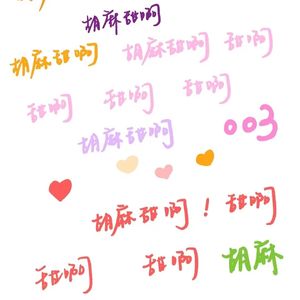 胡麻甜啊
胡麻甜啊 胡麻甜啊 甜啊
甜啊 甜啊 甜啊
胡麻甜啊 003
胡麻甜啊！甜啊
甜啊 甜啊 胡麻